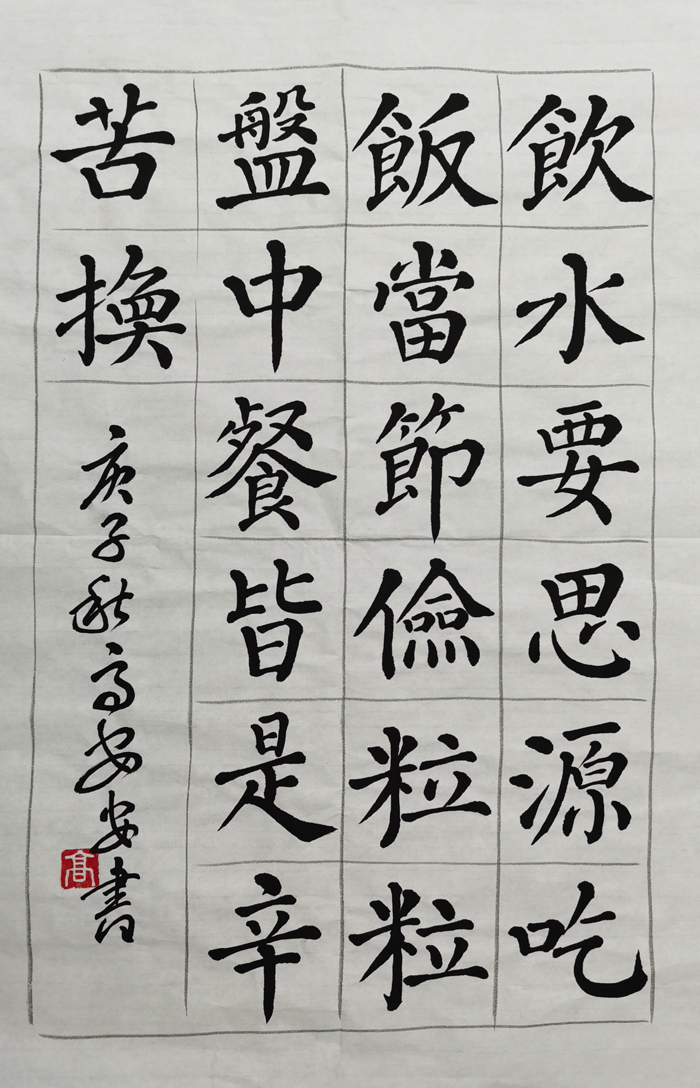 飲水要思源吃
飯當節儉粒粒
盤中餐皆是辛
苦換
庚子秋高安安書
高